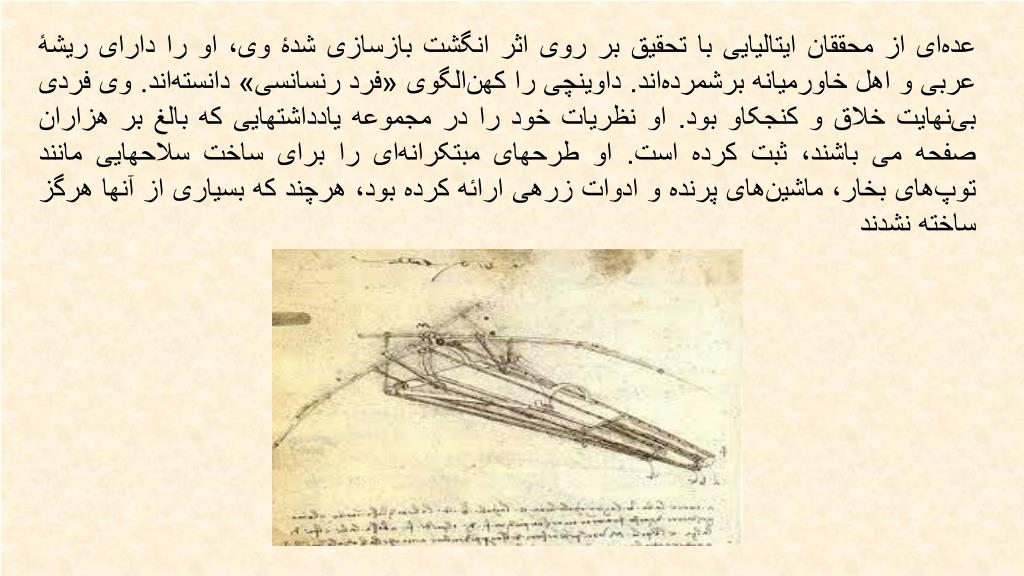 عده‌ای از محققان ایتالیایی با تحقیق بر روی اثر انگشت بازسازی شدهٔ وی، او را دارای ریشهٔ
عربی و اهل خاورمیانه برشمرده‌اند. داوینچی را کهن‌الگوی «فرد رنسانسی» دانسته‌اند. وی فردی
بی‌نهایت خلاق و کنجکاو بود. او نظریات خود را در مجموعه یادداشتهایی که بالغ بر هزاران
صفحه می باشند، ثبت کرده است. او طرحهای مبتکرانه‌ای را برای ساخت سلاحهایی مانند
توپ‌های بخار، ماشین‌های پرنده و ادوات زرهی ارائه کرده بود، هرچند که بسیاری از آنها هرگز
ساخته نشدند